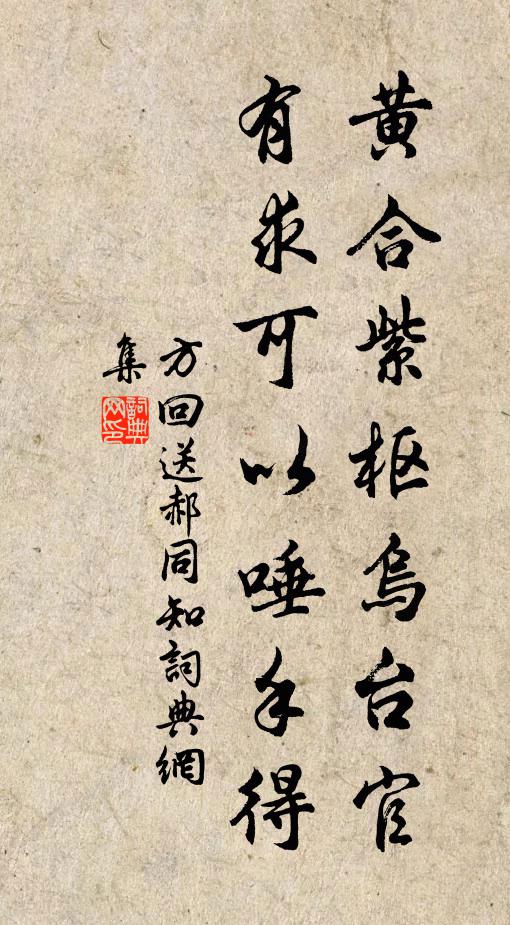 黃合紫枢烏台官
有求可以唾手得
方回送郝同知詞典網
集
詞典网印